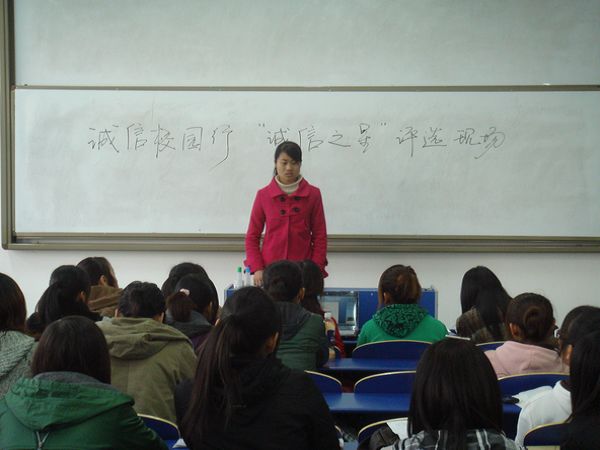 诚信校园行 "诚信之星" 评选现场